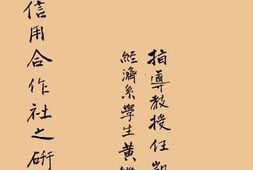 信用合作社之研
指導教授任
經濟系學生黃